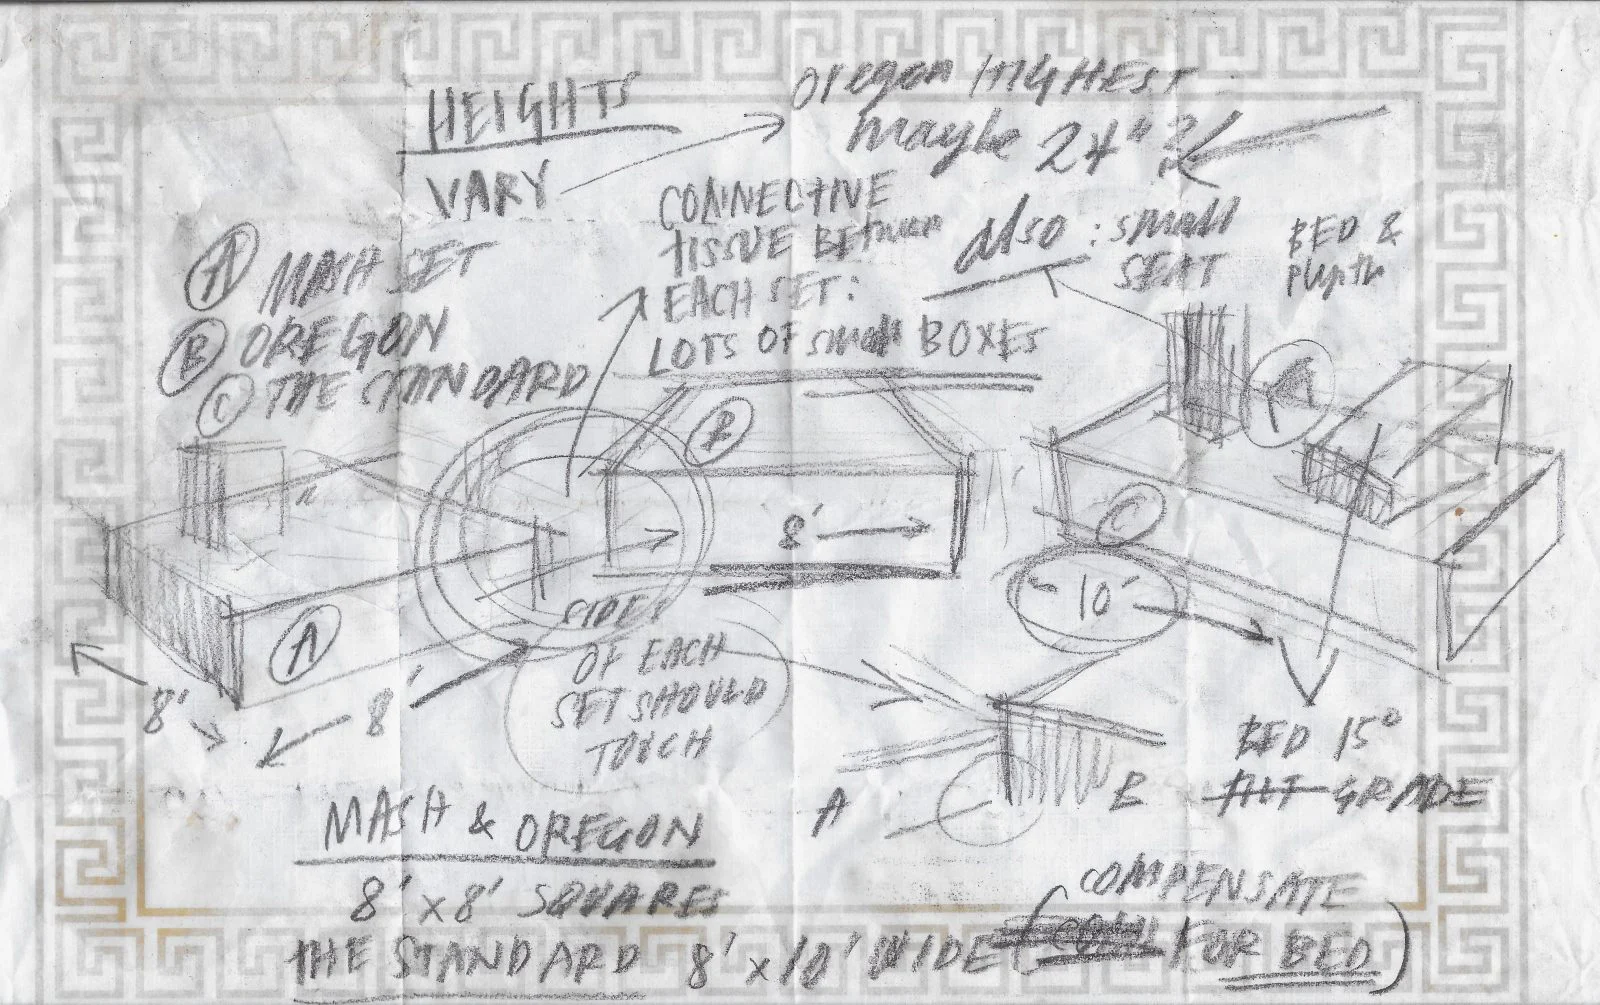 HEIGHTS
VARY
Oregon HIGHEST
maybe 24"?
CONNECTIVE
TISSUE BETWEEN
EACH SET:
LOTS OF SMALL BOXES
Also : SMALL
SEAT
BED &
plynth
A MASH SET
B OREGON
C THE STANDARD
B
A
C
8'
10'
A
8'
8'
SIDES
OF EACH
SET SHOULD
TOUCH
A
B
BED 15°
TILT GRADE
MASH & OREGON
8' x 8' SQUARES
THE STANDARD 8' x 10' WIDE (COMPENSATE
FOR BED)